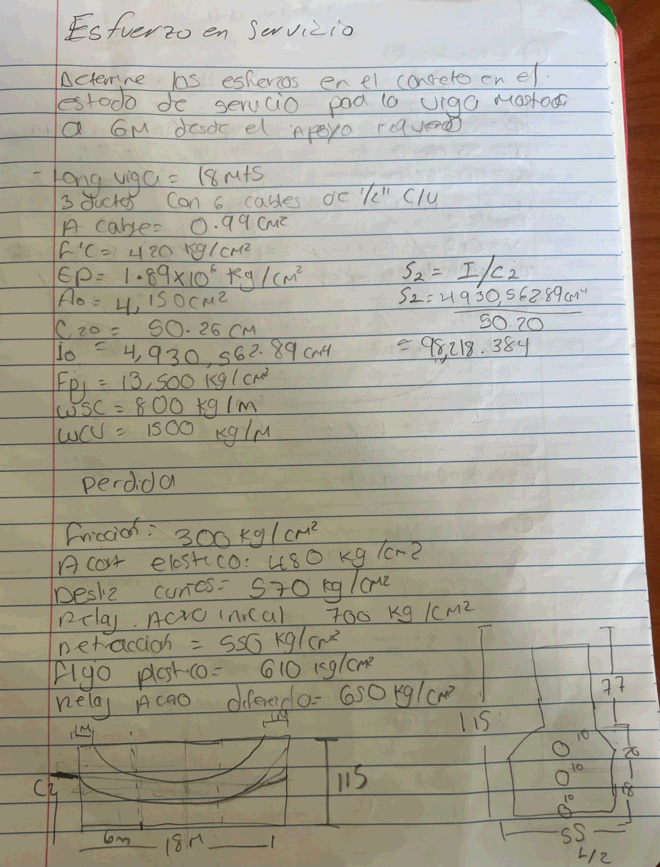 Esfuerzo en servicio
Determine los esfuerzos en el concreto en el
estado de servicio para la viga mostrada
a 6M desde el Apoyo izquierdo
- Long viga = 18 Mts
3 ductos con 6 cables de 1/2" C/U
A cable = 0.99 cm²
F'C = 420 kg/cm²
Ep = 1.89x10⁶ kg/cm²
Ao = 4,150 cm²
C20 = 50.26 cm
io = 4,930,562.89 cm4
Fpj = 13,500 kg/cm²
WSC = 800 kg/m
WCV = 1500 kg/M
S2 = I/C2
S2 = 4930,562.89 cm⁴
50.20
= 98,218.384
perdida
friccion = 300 kg/cm²
A cort elastico: 480 kg/cm2
Desliz cuñas = 570 kg/cm2
Relaj. Acero inicial 700 kg/cm2
Retraccion = 550 kg/cm²
Flujo plastico = 610 kg/cm²
Relaj Acero diferido = 650 kg/cm²
1M
C2
115
6m
18M
115
77
20
18
10
10
10
55
L/2